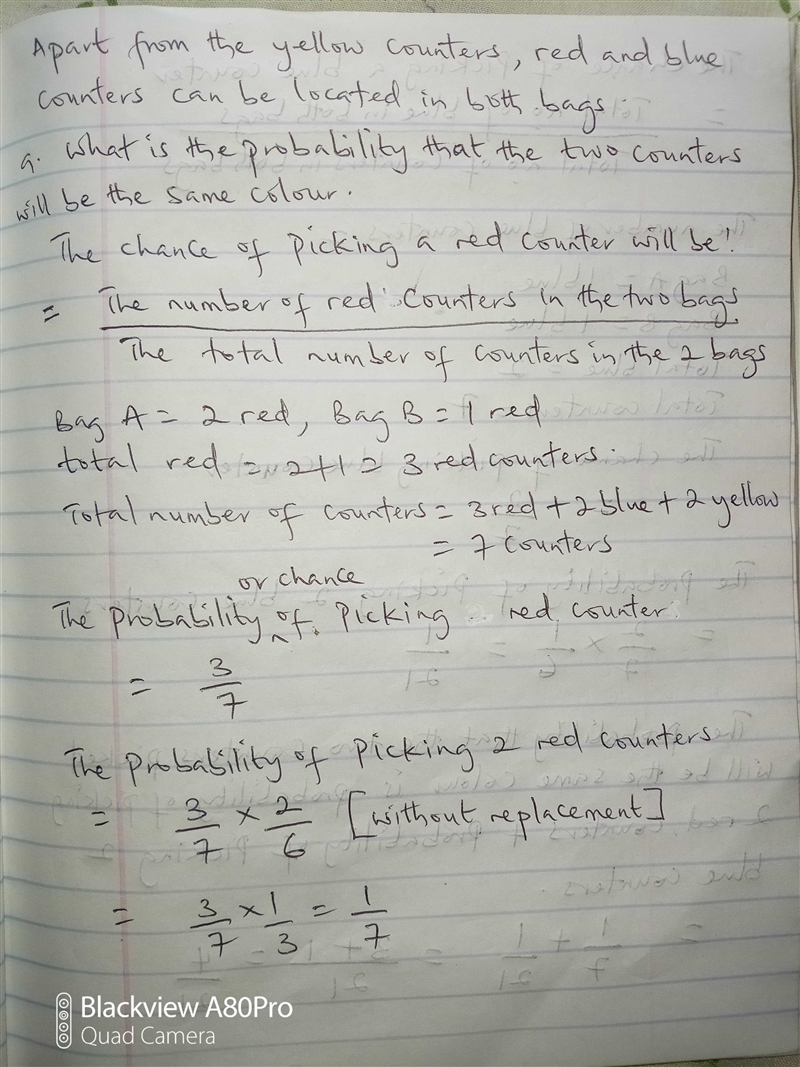 Apart from the yellow counters, red and blue
counters can be located in both bags.
a. What is the probability that the two counters
will be the same colour.
The chance of picking a red counter will be!
= The number of red counters in the two bags
The total number of counters in the 2 bags
Bag A = 2 red, Bag B = 1 red
total red = 2+1 = 3 red counters.
Total number of counters = 3red + 2blue + 2 yellow
= 7 counters
or chance
The probability ^ of picking red counter.
= 3/7
The probability of picking 2 red counters
= 3/7 × 2/6 [without replacement]
= 3/7 × 1/3 = 1/7
Blackview A80Pro
Quad Camera